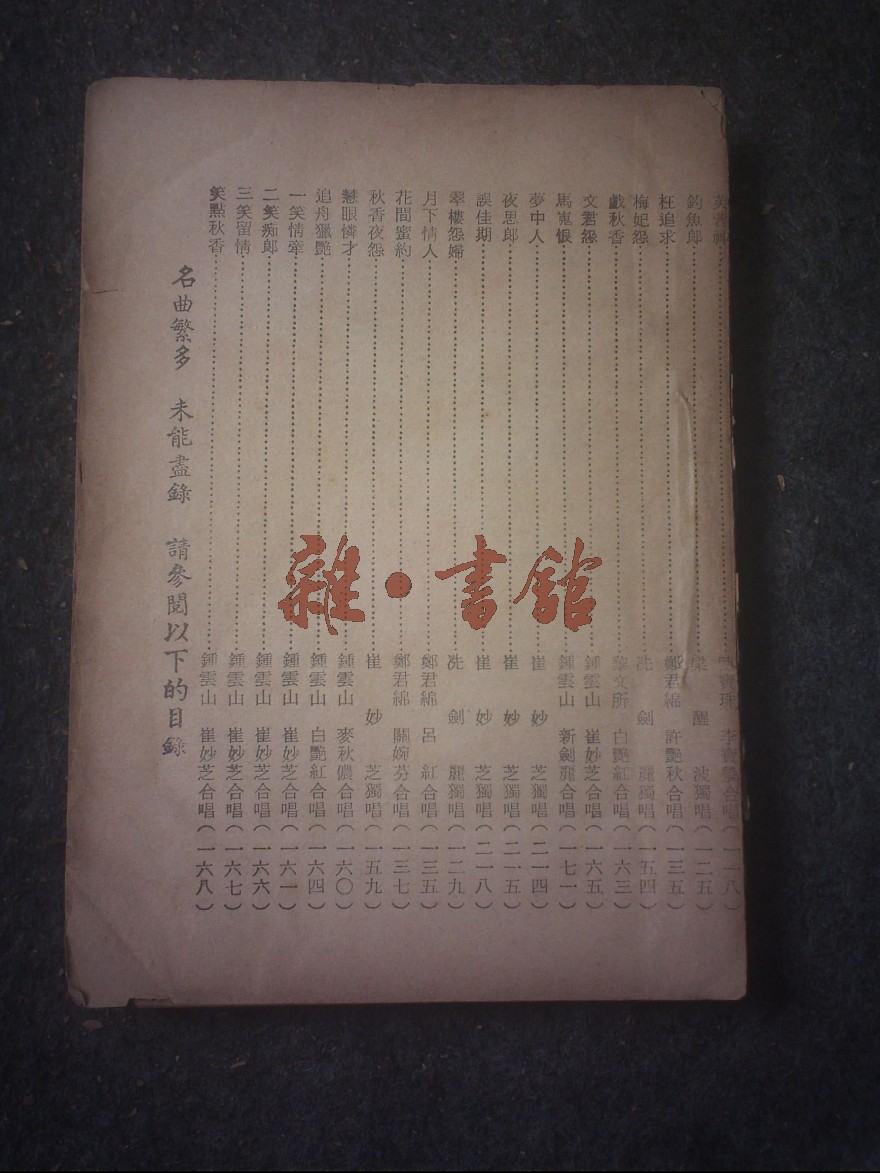 釣魚郎 醒 波獨唱(一二五)
枉追求 鄭君綿 許艷秋合唱(一三五)
梅妃怨 冼 劍 麗獨唱(一五四)
戲秋香 黎文所 白艷紅合唱(一六三)
文君怨 鍾雲山 崔妙芝合唱(一六五)
馬嵬恨 鍾雲山 新劍麗合唱(一七一)
夢中人 崔 妙 芝獨唱(二一四)
夜思郎 崔 妙 芝獨唱(二一五)
誤佳期 崔 妙 芝獨唱(二一八)
翠樓怨婦 冼 劍 麗獨唱(一二九)
月下情人 鄭君綿 呂 紅合唱(一三五)
花間蜜約 鄭君綿 關婉芬合唱(一三七)
秋香夜怨 崔 妙 芝獨唱(一五九)
慧眼憐才 鍾雲山 麥秋儂合唱(一六〇)
追舟獵艷 鍾雲山 白艷紅合唱(一六四)
一笑情牽 鍾雲山 崔妙芝合唱(一六一)
二笑痴郎 鍾雲山 崔妙芝合唱(一六六)
三笑留情 鍾雲山 崔妙芝合唱(一六七)
笑點秋香 鍾雲山 崔妙芝合唱(一六八)
名曲繁多 未能盡錄 請參閱以下的目錄
雜·書館